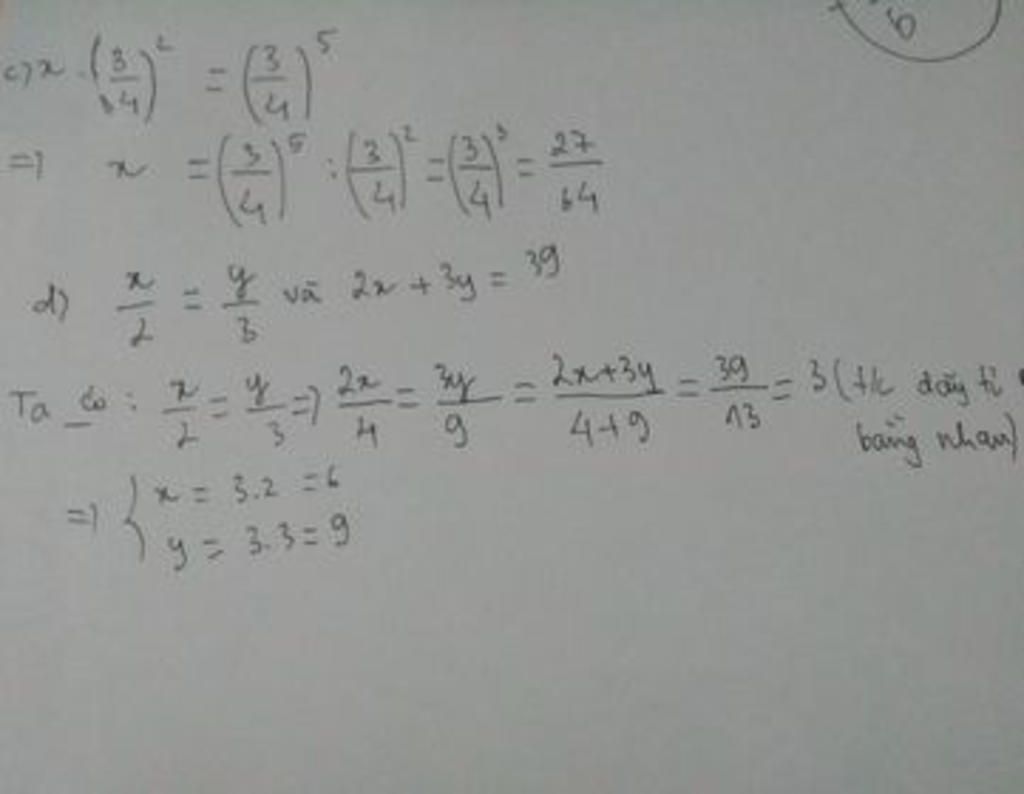 6
c) x . (3/4)^2 = (3/4)^5
=> x = (3/4)^5 : (3/4)^2 = (3/4)^3 = 27/64
d) x/2 = y/3 và 2x + 3y = 39
Ta có : x/2 = y/3 => 2x/4 = 3y/9 = 2x+3y/4+9 = 39/13 = 3 (t/c dãy tỉ
bằng nhau)
=> { x = 3.2 = 6
y = 3.3 = 9